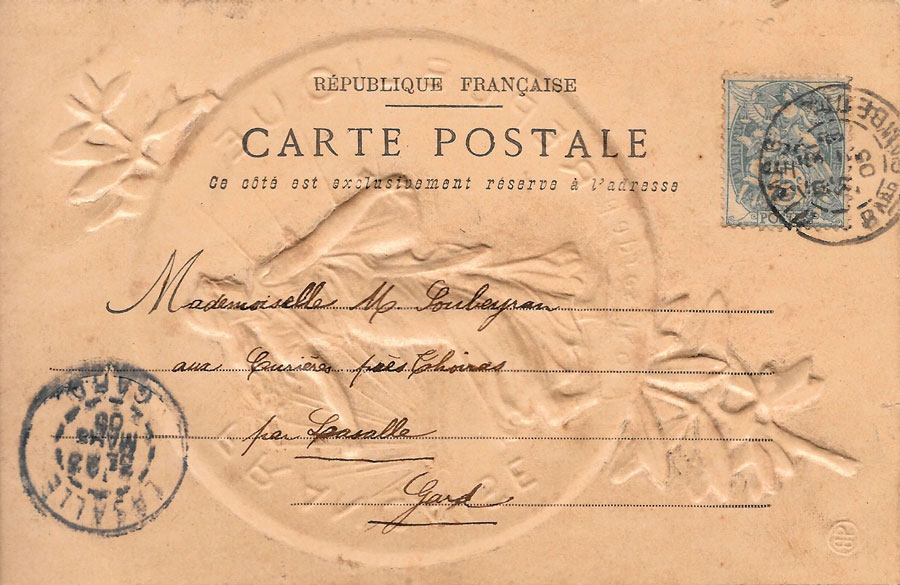 RÉPUBLIQUE FRANÇAISE
CARTE POSTALE
Ce côté est exclusivement réservé à l'adresse
Mademoiselle M. Soubeyran
aux près Thoiras
par Lasalle
Gard
LASALLE
GARD
FRANCE